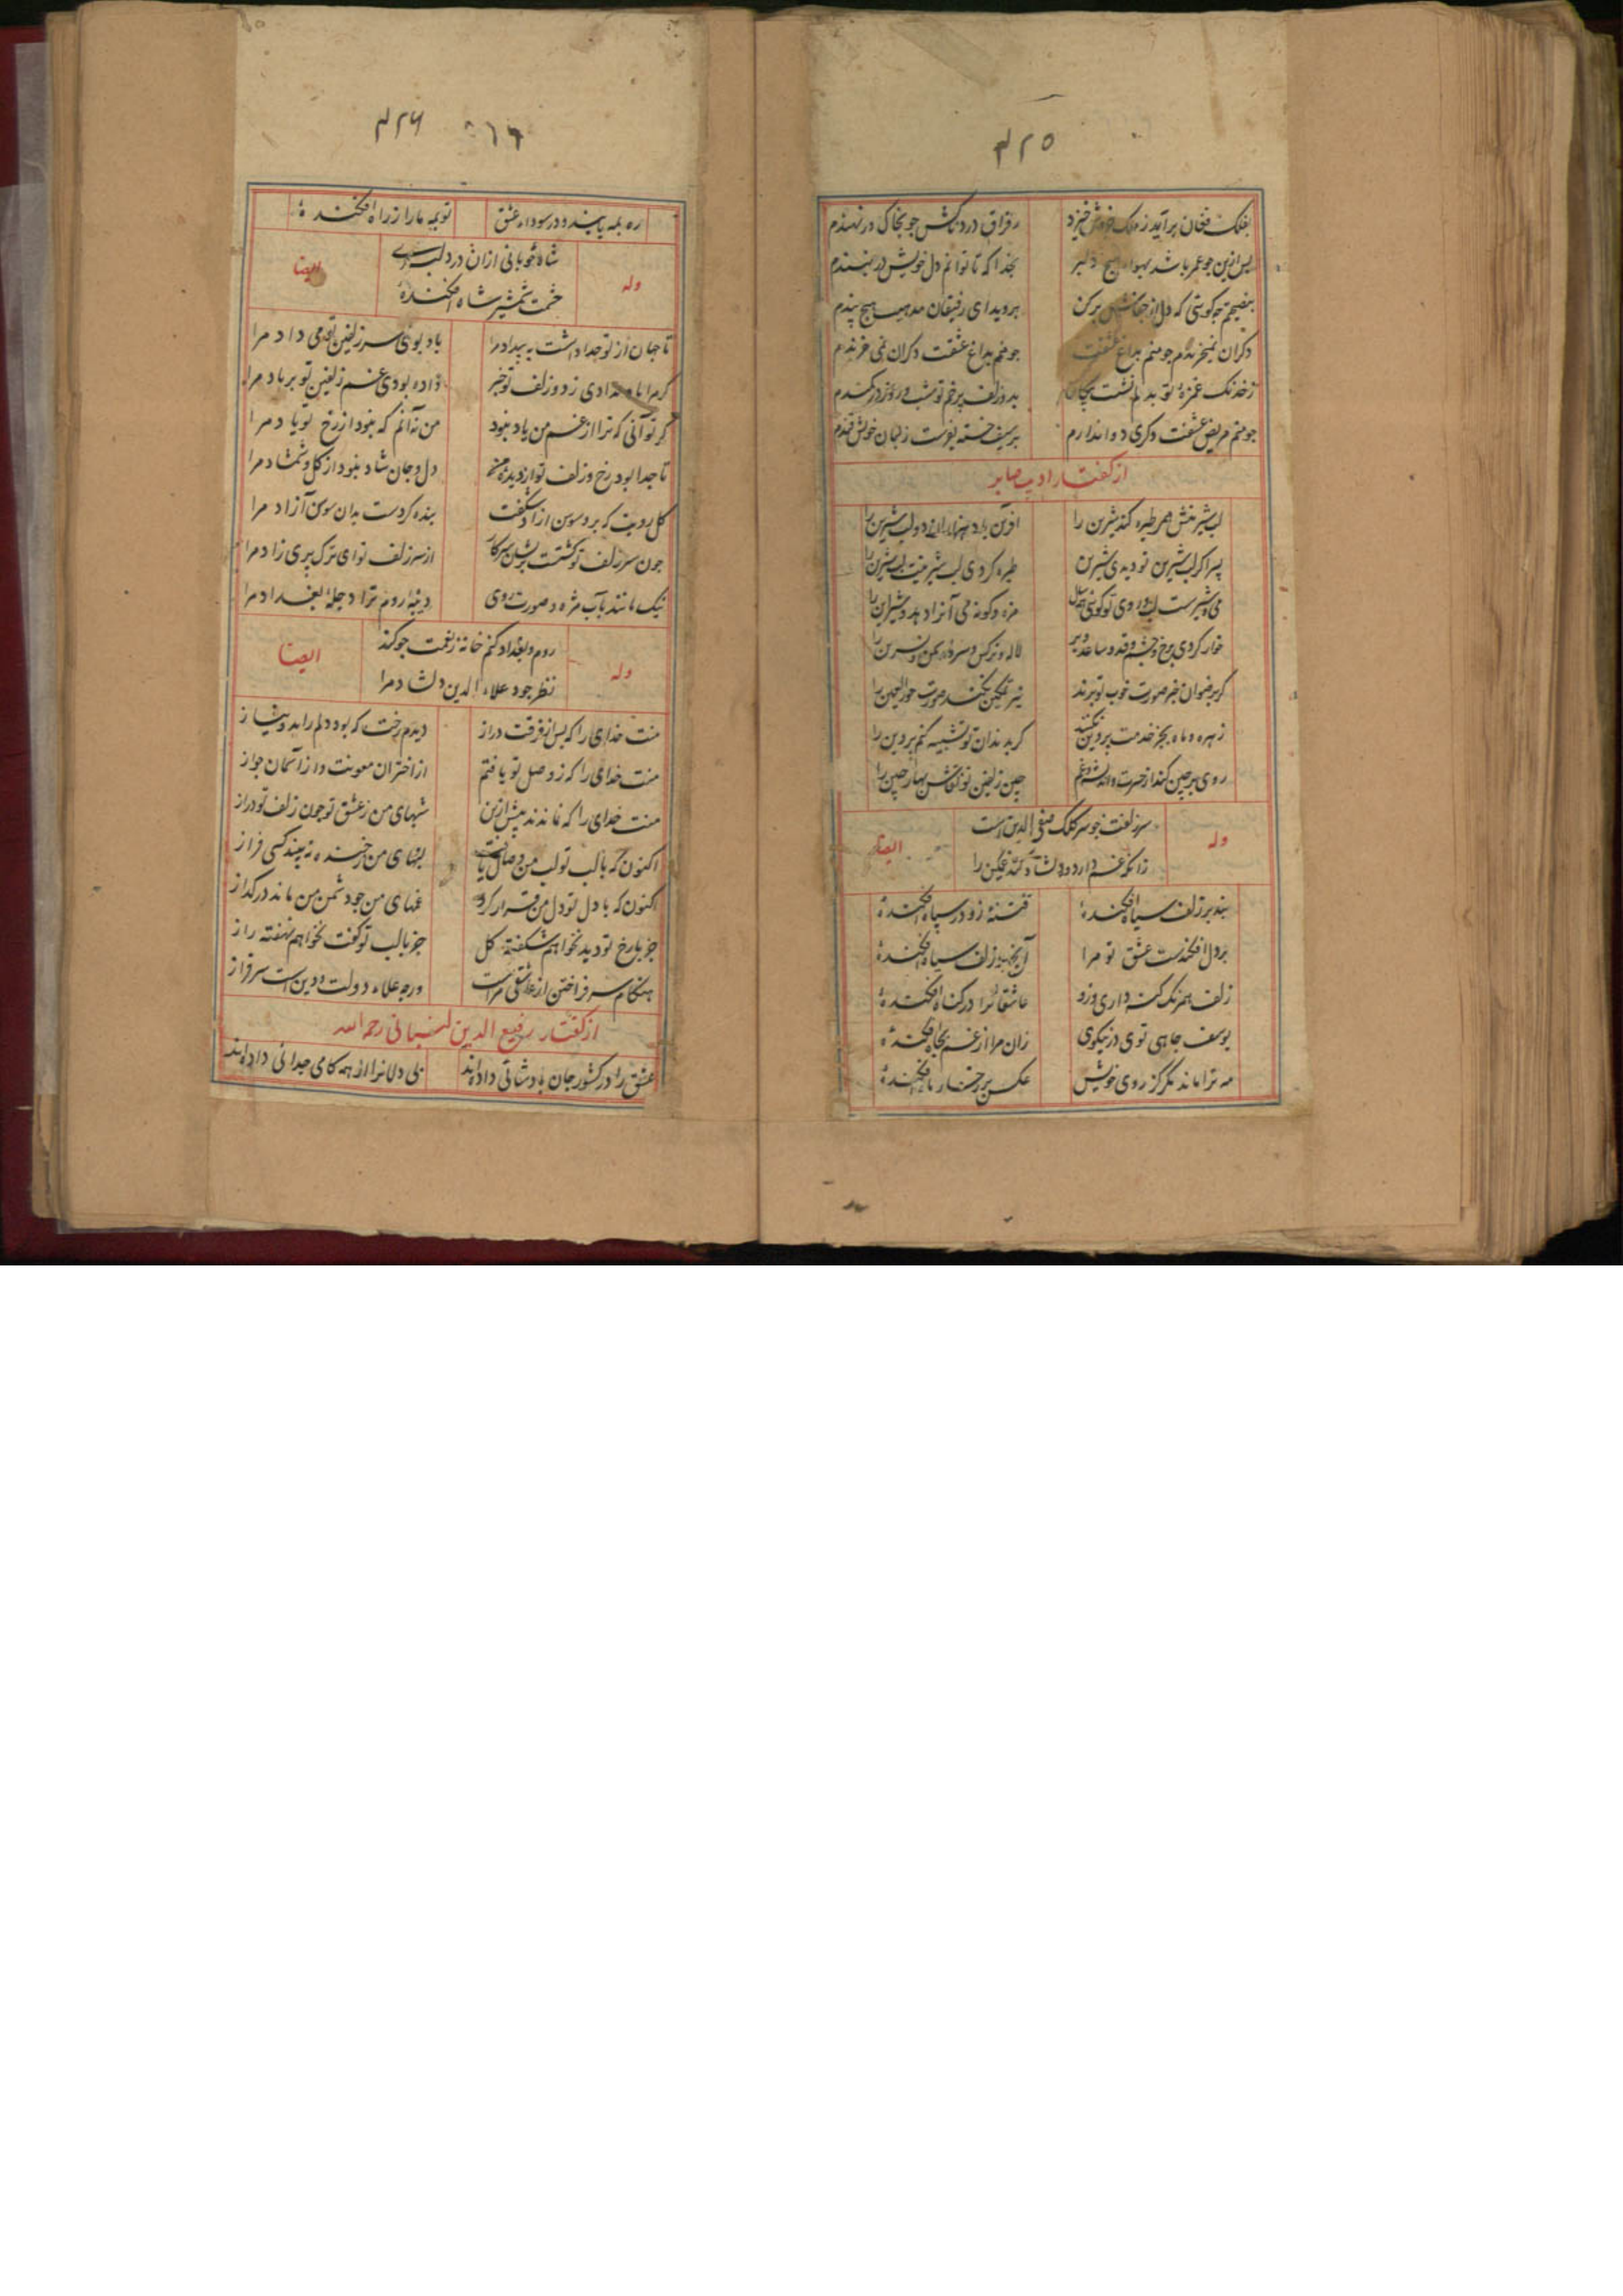 ۴۲۵
بفلک فغان برآید ز ملک خروش خیزد ز فراق دردناکش چو بخاک در نهندم
پس ازین چو عمر باشد بهوای هیچ دلبر بخدا که تا توانم دل خویش در نبندم
بنصیحتم چه کوشی که دل از جفاش برکن بروید ای رفیقان مدهید هیچ پندم
دکران نمیخرندم چو منم بداغ عشقت چو منم بداغ عشقت دکران نمی خرندم
ز خدنک غمزهٔ تو بدلم نشست پیکان بدو زلف پرخم تو شب و روز در کمندم
چو منم مریض عشقت دکری دوا ندارم بر سیف خسته بوست ز لبان خویش قندم
از کفتار ادیب صابر
لب شیرینش همی طیره کند شیرین را آفرین باد هزاران دو لب شیرین را
پسرا کر لب شیرین تو دیدی شیرین طیره کردی لب شیرینت لب شیرین را
می و شیرست لب و روی تو کوئی مزه و کونه می آنرا دهد و شیر این را
خوار کردی برخ و چشم و قد و ساعد و بر لاله و نرکس و سرو و سمن و نسرین را
کر برضوان خبر صورت خوب تو برند نیز تمکین نکند صورت حورالعین را
زهره و ماه بجز خدمت پروین نکنند کر بدندان تو تشبیه کنم پروین را
روی پرچین کند از حسرت و اندیشه و غم چین زلفین تو نقاش بهار چین را
وله سر زلفت چو سر کلک صفی الدین است ایضا
زانکه غم دارد و دلشاد کند غمکین را
بند بر زلف سیاه افکندهٔ فتنهٔ زو در سپاه افکندهٔ
بر دل افکندست عشق تو مرا آنچه در زلف سیاه افکندهٔ
زلف همرنک کنه داری وزو عاشقانرا در کناه افکندهٔ
یوسف چاهی توی در نیکوی زان مرا از غم بچاه افکندهٔ
مه ترا ماند مکر کز روی خویش عکس بر رخسار ماه افکندهٔ
۴۲۶ ٥١٦
ره همه یابند و در سودای عشق تو همه ما را ز راه افکندهٔ
وله شاه خوبانی ازان در دلبری ایضا
خشمت شمشیر شاه افکندهٔ
تا جهان از تو جدا داشت به بیداد مرا باد بوی سر زلفین تو می داد مرا
کر مرا باد ندادی ز دو زلف تو خبر داده بودی غم زلفین تو بر باد مرا
کر تو آنی که ترا از غم من یاد نبود من نه آنم که نبود از رخ تو یاد مرا
تا جدا بود رخ و زلف تو از دیده من دل و جان شاد نبود از کل و شمشاد مرا
کل رویت که برو سوسن آزاد شکفت بنده کردست بدان سوسن آزاد مرا
چون سر زلف تو کشتست پریشان سر کار از سر زلف تو ای ترک پری زاد مرا
نیک مانند بآب مژه و صورت روی دیبهٔ روم ترا دجلهٔ بغداد مرا
وله روم و بغداد کنم خانه ز نعمت چو کند ایضا
نظر جود علاء الدین دلشاد مرا
منت خدای را که پس از فرقت دراز دیدم رخت که بود دلم را بدو نیاز
منت خدای را که ز وصل تو یافتم از اختران معونت و از آسمان جواز
منت خدای را که نماندند پیش ازین شبهای من ز عشق تو چون زلف تو دراز
اکنون که با لب تو لب من وصال یافت لبهای من ز خنده نه بیند کسی فراز
اکنون که با دل تو دل من قرار کرد غمهای من چو دشمن من ماند در کداز
جز با رخ تو دید نخواهم شکفته کل جز با لب تو کفت نخواهم نهفته راز
هنکام سر فراختن از عاشقی مراست ورچه علاء دولت و دین است سرفراز
از کفتار رفیع الدین لنبانی رحمه الله
عشق را در کشور جان پادشائی داده اند بی دلانرا از همه کامی جدائی داده اند